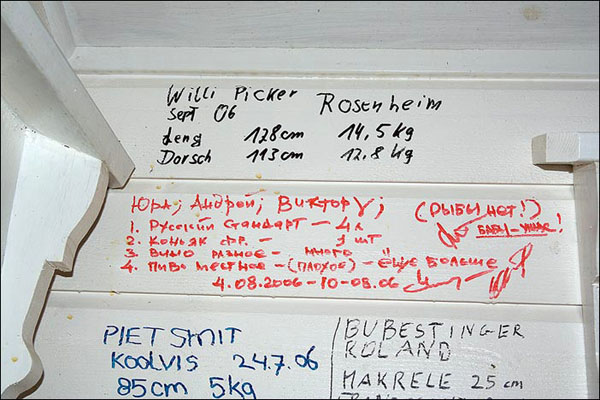 Willi Picker Rosenheim
Sept 06
Leng 128cm 14,5kg
Dorsch 113cm 12,8kg
Юра; Андрей; Виктор;
(РЫБЫ НЕТ!)
1. Русский Стандарт – 4л
2. Коньяк фр. – 3 шт
БАБЫ – УЖАС!
3. Вино разное – много
4. Пиво местное – (плохое) – ещё больше
4.08.2006 – 10-08.06
PIET SMIT
KOOLVIS 24.7.06
85cm 5kg
BUBESTINGER
ROLAND
MAKRELE 25 cm